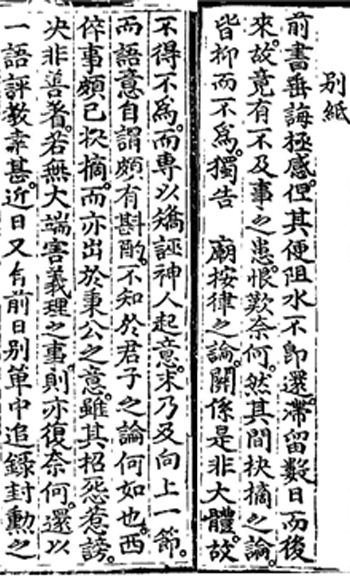 別紙
前書垂誨極感但其便阻水不卽還滯留數日而後
來故竟有不及事之患恨歎奈何然其間抉摘之論
皆抑而不爲獨告 廟按律之論關係是非大體故
不得不爲而專以矯誣神人起意末乃及向上一節
而語意自謂頗有斟酌不知於君子之論何如也西
倅事頗已抉摘而亦出於秉公之意雖其招怨惹謗
决非善者若無大端害義理之事則亦復奈何還以
一語評敎幸甚近日又有前日別單中追錄封勳之